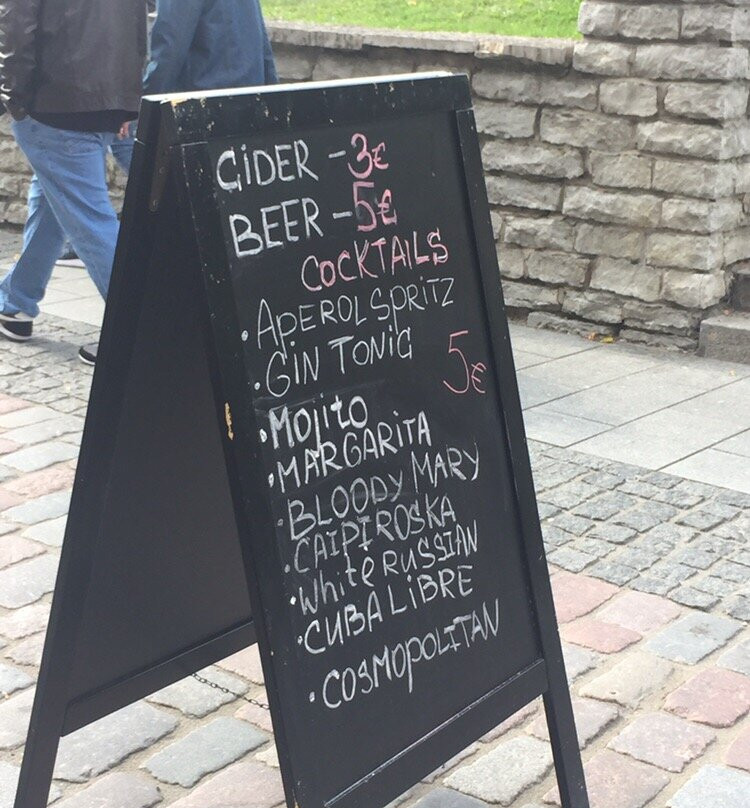 CIDER - 3€
BEER - 5€
COCKTAILS
• APEROL SPRITZ
• GIN TONIC
5€
• MOJITO
• MARGARITA
• BLOODY MARY
• CAIPIROSKA
• White RUSSIAN
• CUBA LIBRE
• COSMOPOLITAN